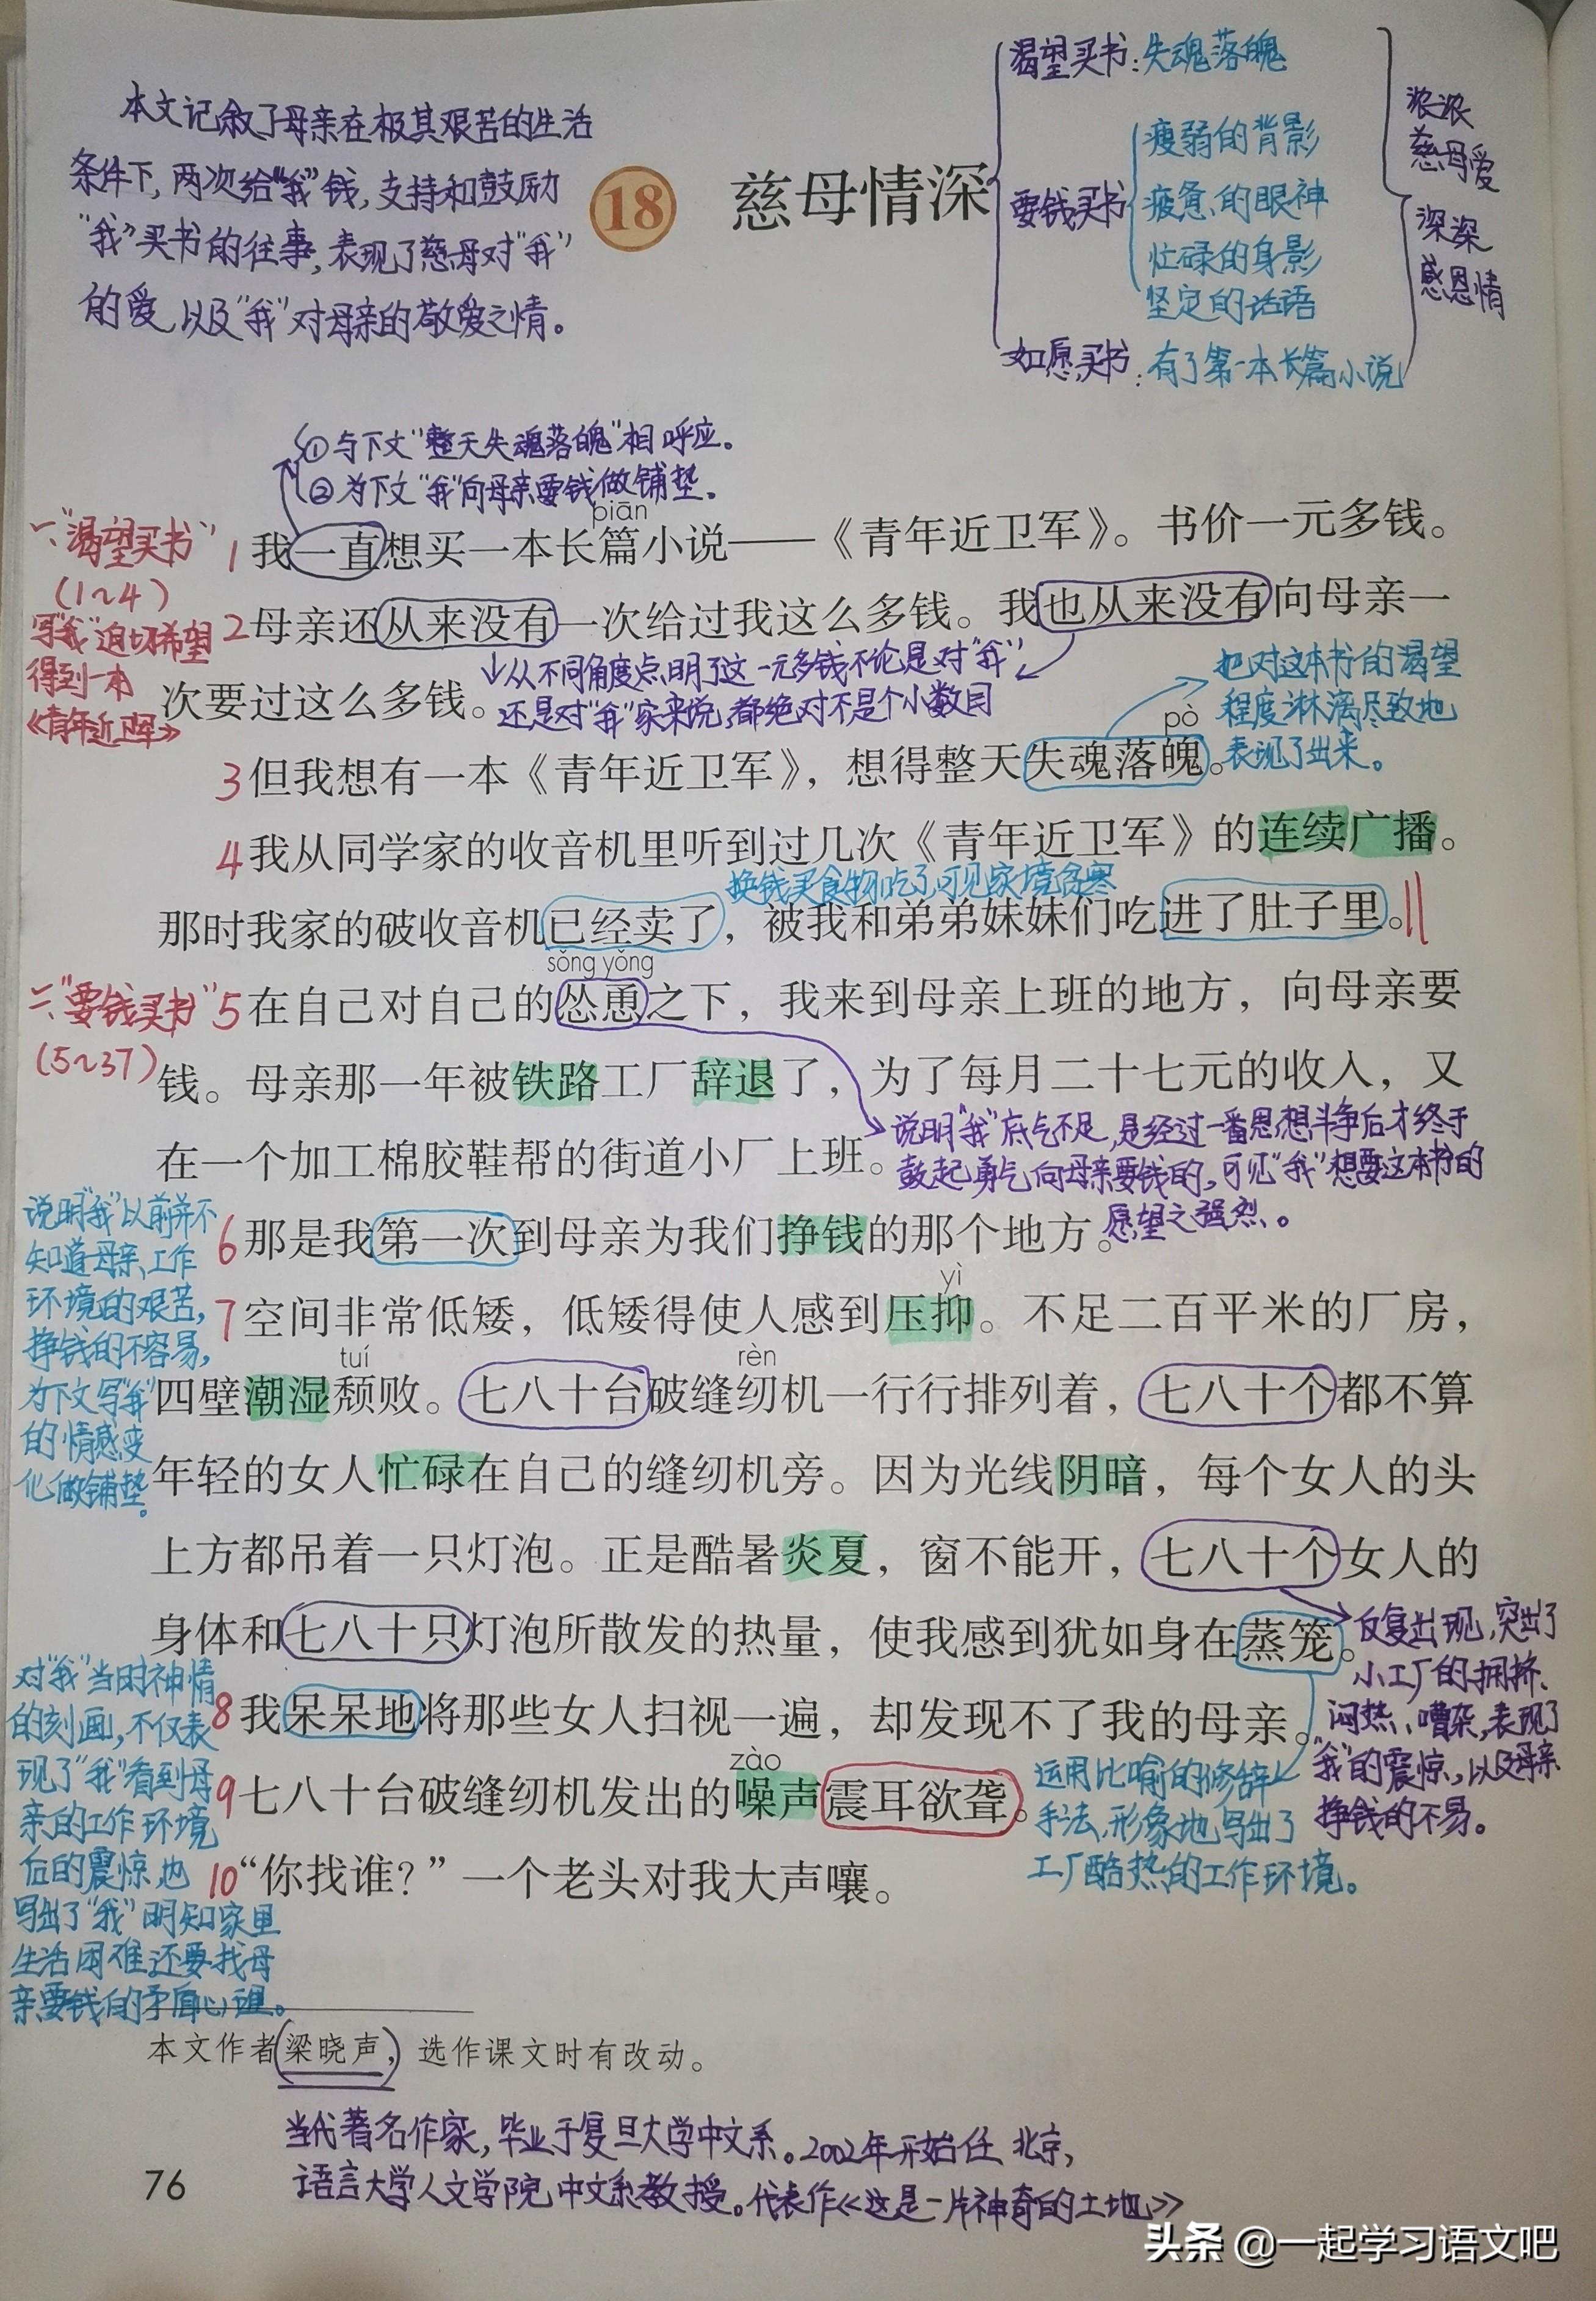 本文记叙了母亲在极其艰苦的生活
条件下,两次给"我"钱,支持和鼓励
"我"买书的往事,表现了慈母对"我"
的爱,以及"我"对母亲的敬爱之情。
18 慈母情深
渴望买书:失魂落魄
要钱买书
瘦弱的背影
疲惫的眼神
忙碌的身影
坚定的话语
如愿买书:有了第一本长篇小说
浓浓
慈母爱
深深
感恩情
①与下文"整天失魂落魄"相呼应。
②为下文"我"向母亲要钱做铺垫。
一、"渴望买书"
(1~4)
写"我"迫切希望
得到一本
《青年近卫军》
piān
1我一直想买一本长篇小说——《青年近卫军》。书价一元多钱。
2母亲还从来没有一次给过我这么多钱。我也从来没有向母亲一
次要过这么多钱。
从不同角度点明了这一元多钱不论是对"我"
还是对"我"家来说,都绝对不是个小数目
把对这本书的渴望
程度淋漓尽致地
表现了出来。
pò
3但我想有一本《青年近卫军》,想得整天失魂落魄。
4我从同学家的收音机里听到过几次《青年近卫军》的连续广播。
换钱买食物吃了,可见家境贫寒
那时我家的破收音机已经卖了,被我和弟弟妹妹们吃进了肚子里。
二、"要钱买书"
(5~37)
sǒng yǒng
5在自己对自己的怂恿之下,我来到母亲上班的地方,向母亲要
钱。母亲那一年被铁路工厂辞退了,为了每月二十七元的收入,又
在一个加工棉胶鞋帮的街道小厂上班。
说明"我"底气不足,是经过一番思想斗争后才终于
鼓起勇气向母亲要钱的,可见"我"想要这本书的
愿望之强烈。
说明"我"以前并不
知道母亲工作
环境的艰苦,
挣钱的不容易,
为下文写"我"
的情感变
化做铺垫。
6那是我第一次到母亲为我们挣钱的那个地方。
yì
7空间非常低矮,低矮得使人感到压抑。不足二百平米的厂房,
tuí rèn
四壁潮湿颓败。七八十台破缝纫机一行行排列着,七八十个都不算
年轻的女人忙碌在自己的缝纫机旁。因为光线阴暗,每个女人的头
上方都吊着一只灯泡。正是酷暑炎夏,窗不能开,七八十个女人的
身体和七八十只灯泡所散发的热量,使我感到犹如身在蒸笼。
反复出现,突出了
小工厂的拥挤、
闷热、嘈杂,表现了
"我"的震惊,以及母亲
挣钱的不易。
对"我"当时神情
的刻画,不仅表
现了"我"看到母
亲的工作环境
后的震惊,也
写出了"我"明知家里
生活困难还要找母
亲要钱的矛盾心理。
8我呆呆地将那些女人扫视一遍,却发现不了我的母亲。
zào
9七八十台破缝纫机发出的噪声震耳欲聋。
运用比喻的修辞
手法,形象地写出了
工厂酷热的工作环境。
10"你找谁?"一个老头对我大声嚷。
本文作者梁晓声,选作课文时有改动。
当代著名作家,毕业于复旦大学中文系。2002年开始任北京
语言大学人文学院中文系教授。代表作《这是一片神奇的土地》
76
头条 @一起学习语文吧